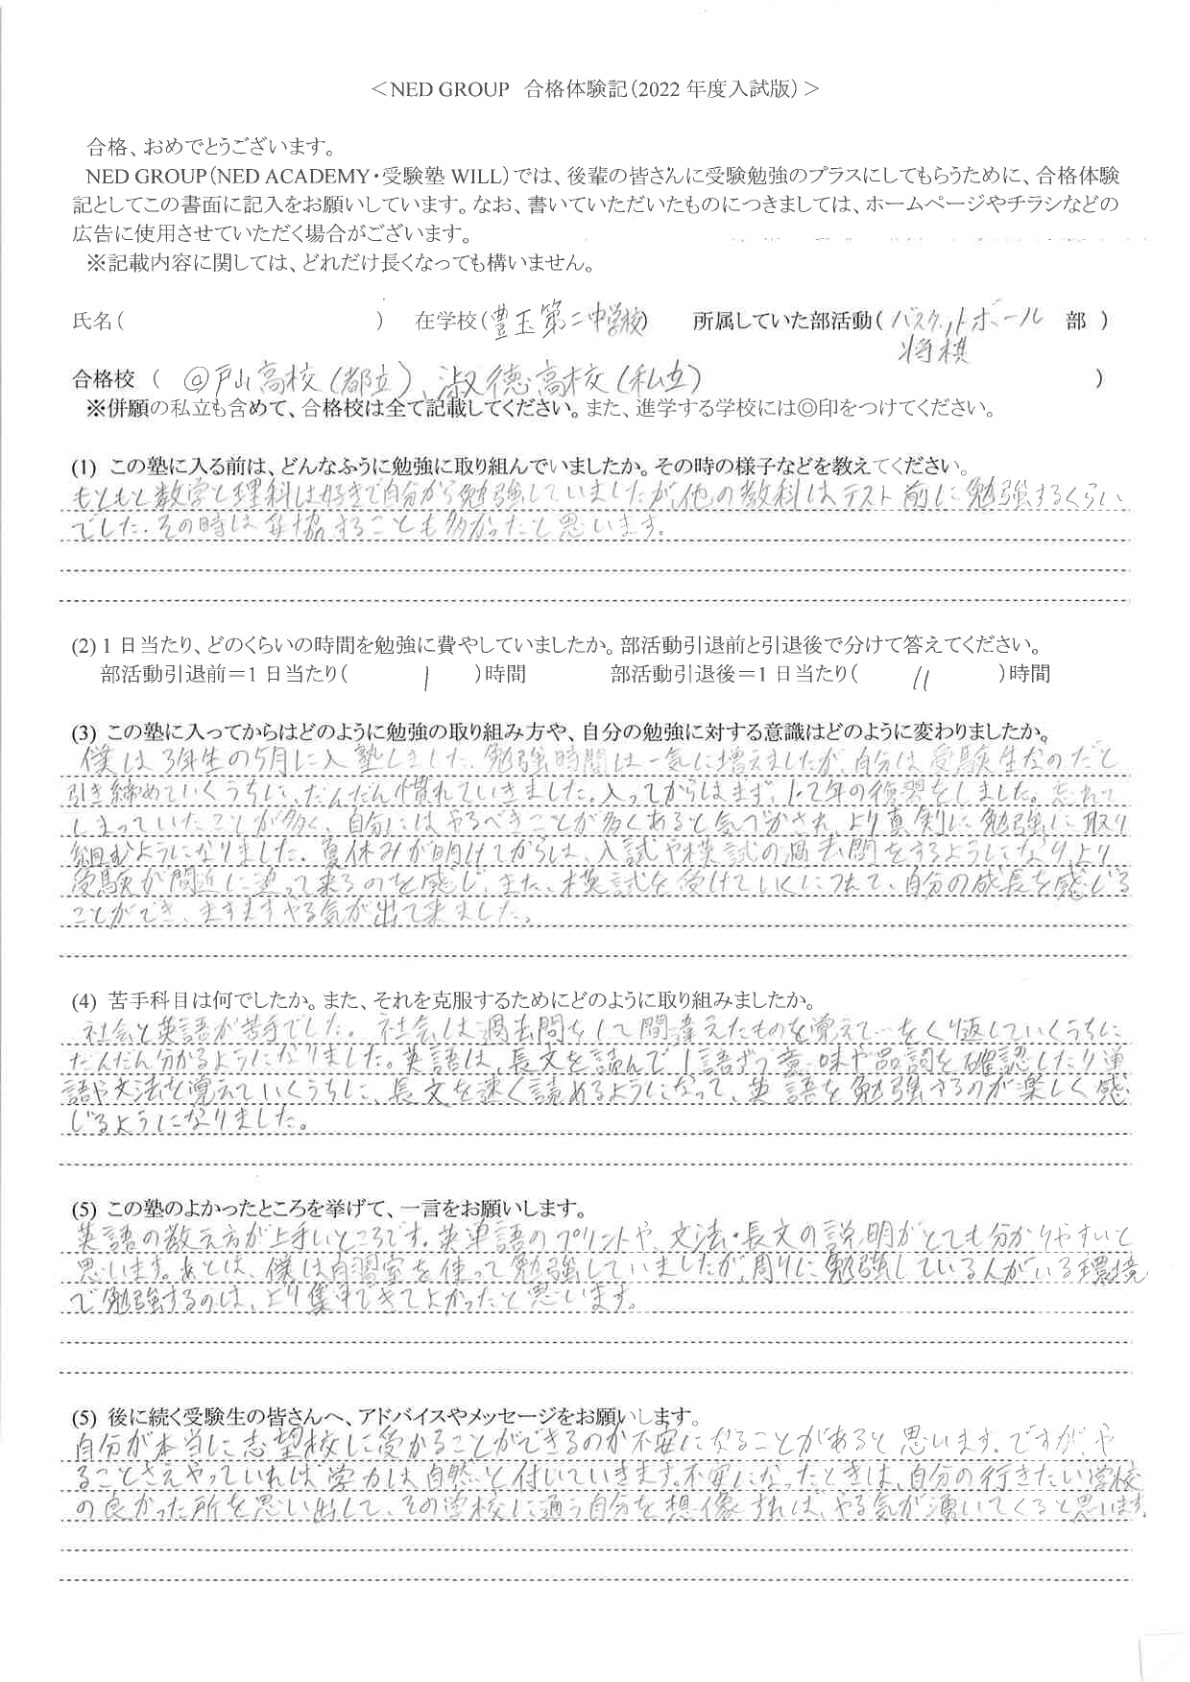 ＜NED GROUP 合格体験記（2022 年度入試版）＞
合格、おめでとうございます。
NED GROUP（NED ACADEMY・受験塾 WILL）では、後輩の皆さんに受験勉強のプラスにしてもらうために、合格体験
記としてこの書面に記入をお願いしています。なお、書いていただいたものにつきましては、ホームページやチラシなどの
広告に使用させていただく場合がございます。
※記載内容に関しては、どれだけ長くなっても構いません。
氏名（ ） 在学校（豊玉第二中学校） 所属していた部活動（ バスケットボール 部 ）
将棋
合格校 （ ◎戸山高校（都立）、淑徳高校（私立） ）
※併願の私立も含めて、合格校は全て記載してください。また、進学する学校には◎印をつけてください。
(1) この塾に入る前は、どんなふうに勉強に取り組んでいましたか。その時の様子などを教えてください。
もともと数学と理科は好きで自分から勉強していましたが、他の教科はテスト前に勉強するくらい
でした。その時は妥協することも多かったと思います。
(2) 1 日当たり、どのくらいの時間を勉強に費やしていましたか。部活動引退前と引退後で分けて答えてください。
部活動引退前＝1 日当たり（ 1 ）時間 部活動引退後＝1 日当たり（ 11 ）時間
(3) この塾に入ってからはどのように勉強の取り組み方や、自分の勉強に対する意識はどのように変わりましたか。
僕は3年生の5月に入塾しました。勉強時間は一気に増えましたが、自分は受験生なのだと
引き締めていくうちに、だんだん慣れていきました。入ってからはまず、1・2年の復習をしました。忘れて
しまっていたことが多く、自分にはやるべきことが多くあると気づかされ、より真剣に勉強に取り
組むようになりました。夏休みが明けてからは、入試や模試の過去問をするようになり、より
受験が間近に迫って来るのを感じ、また、模試を受けていくにつれて、自分の成長を感じる
ことができ、ますますやる気が出て来ました。
(4) 苦手科目は何でしたか。また、それを克服するためにどのように取り組みましたか。
社会と英語が苦手でした。社会は過去問をして間違えたものを覚えて…をくり返していくうちに
だんだん分かるようになりました。英語は、長文を読んで1語ずつ意味や品詞を確認したり連
語や文法を覚えていくうちに、長文を速く読めるようになって、英語を勉強するのが楽しく感
じるようになりました。
(5) この塾のよかったところを挙げて、一言をお願いします。
英語の教え方が上手いところです。英単語のプリントや、文法・長文の説明がとても分かりやすいと
思います。あとは、僕は自習室を使って勉強していましたが、周りに勉強している人がいる環境
で勉強するのは、より集中できてよかったと思います。
(5) 後に続く受験生の皆さんへ、アドバイスやメッセージをお願いします。
自分が本当に志望校に受かることができるのか不安になることがあると思います。ですが、や
ることさえやっていれば学力は自然と付いていきます。不安になったときは、自分の行きたい学校
の良かった所を思い出して、その学校に通う自分を想像すれば、やる気が湧いてくると思います。